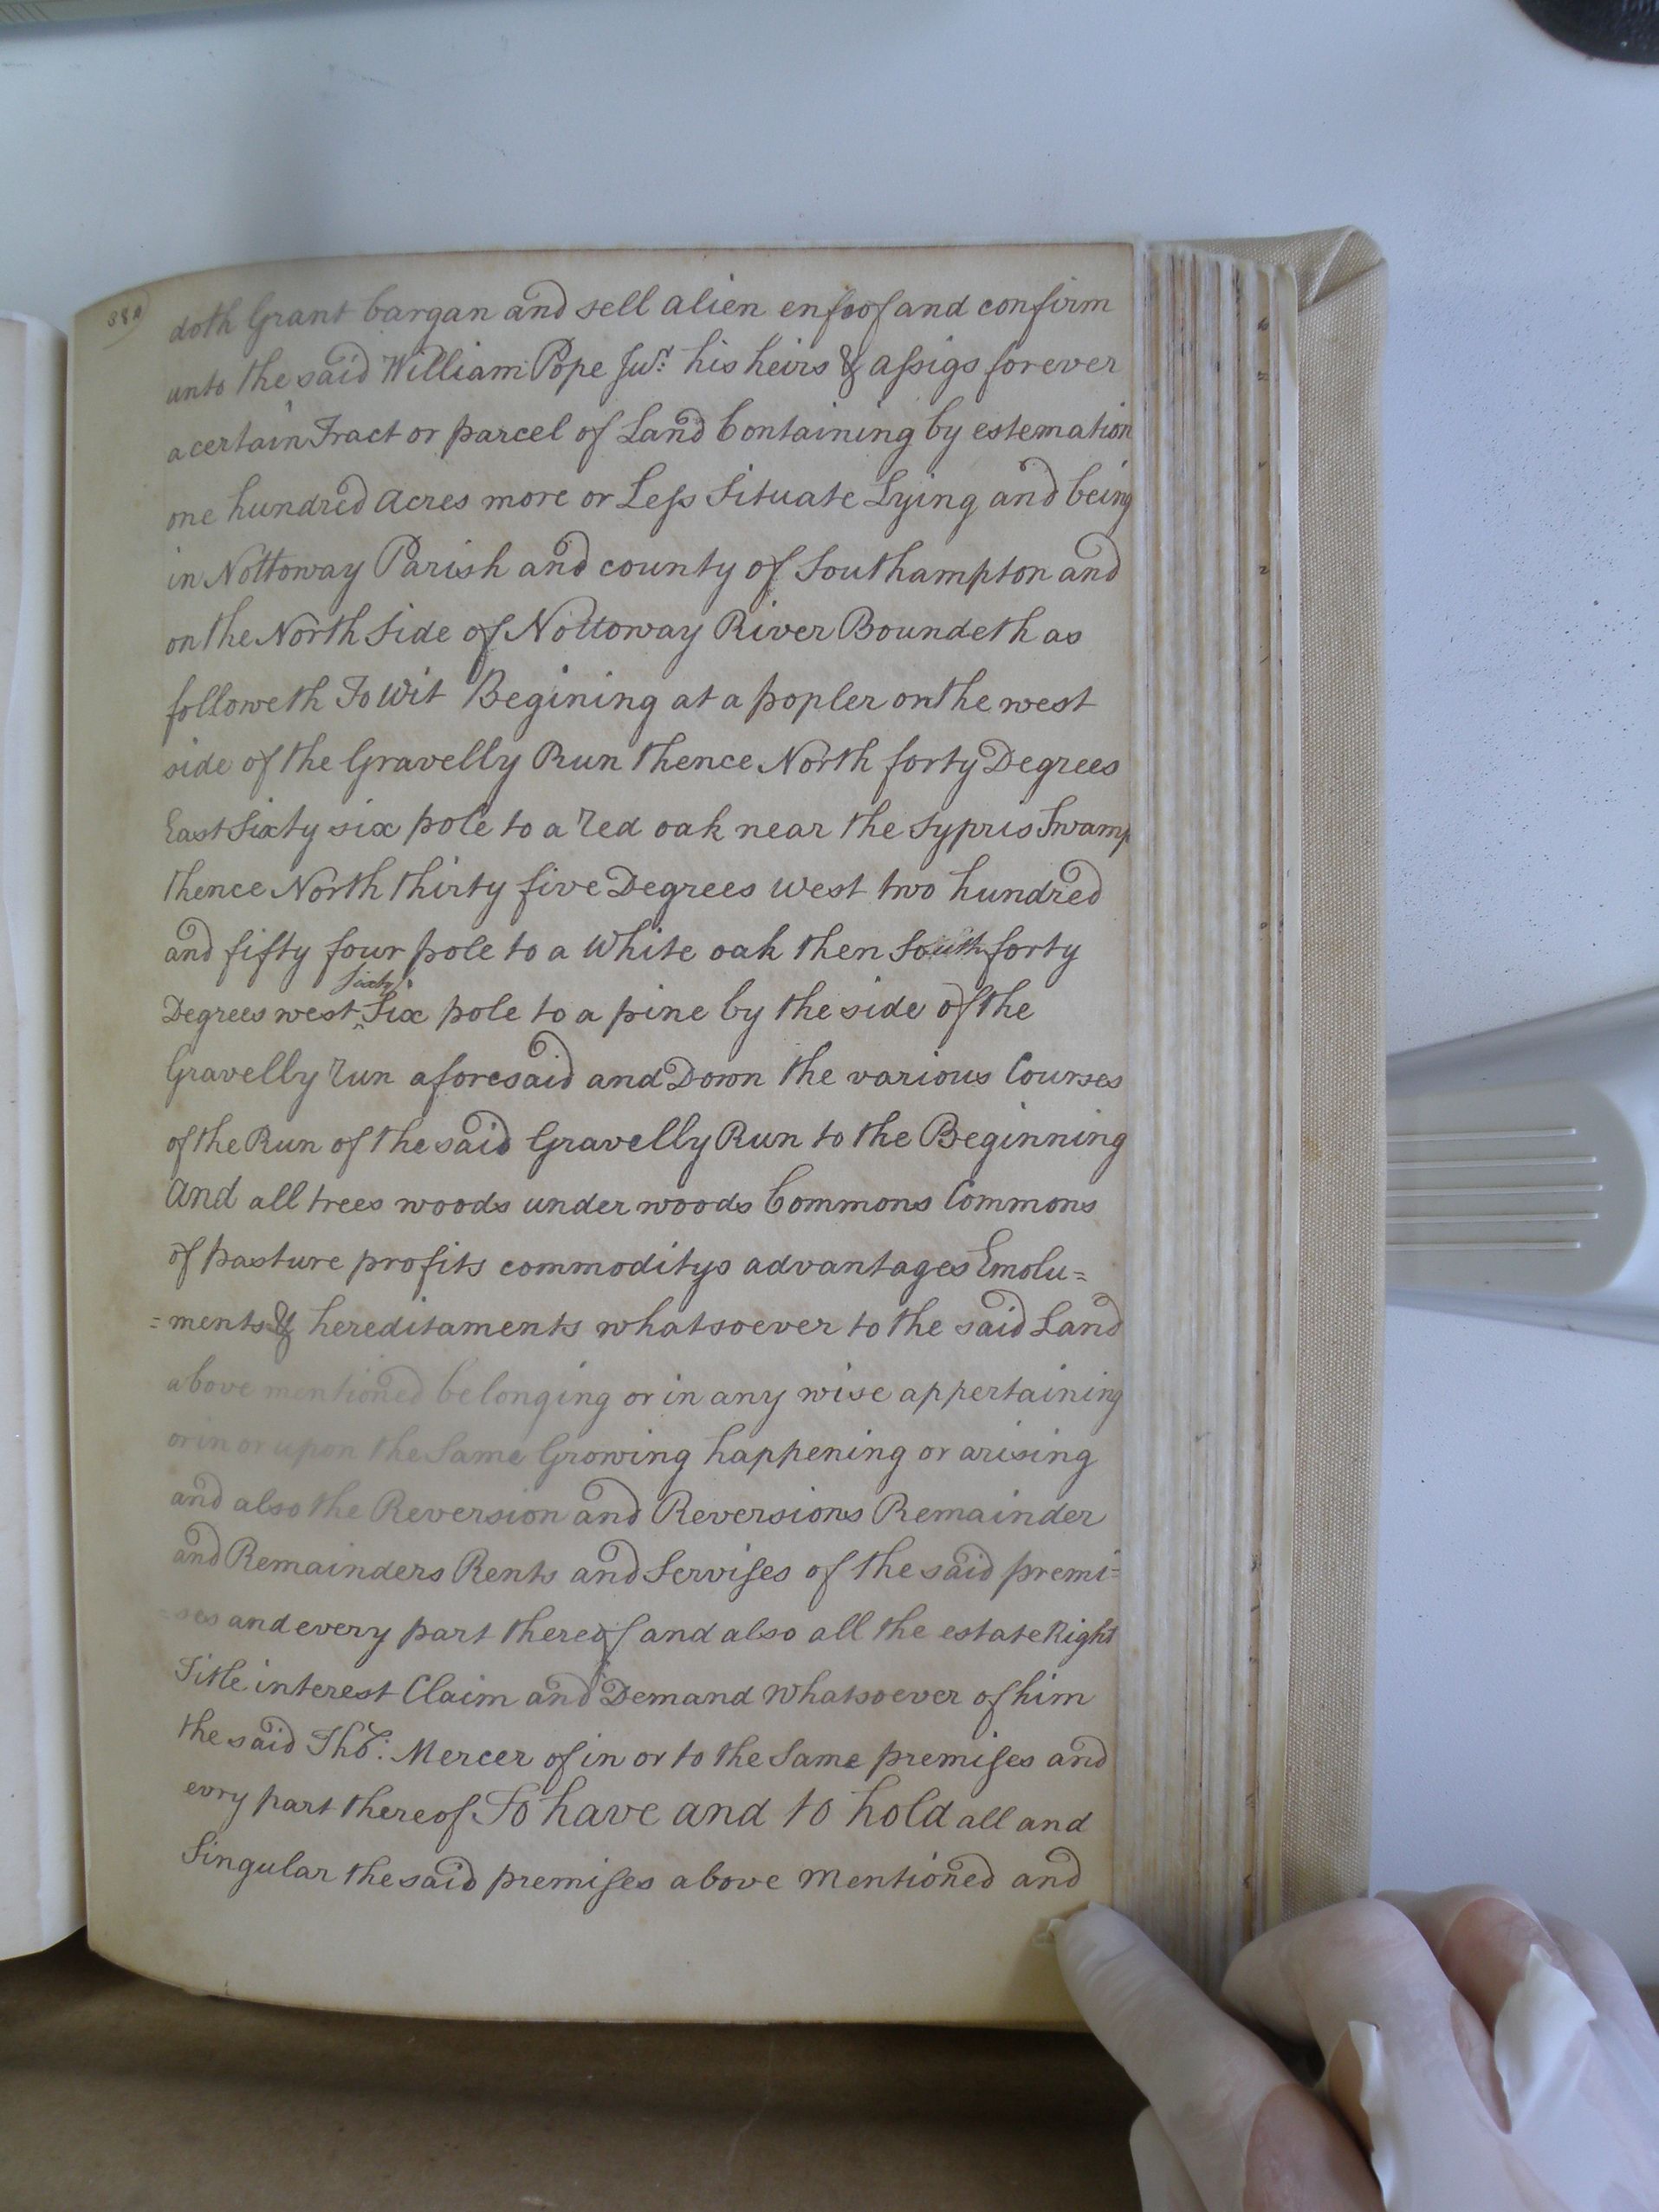 doth Grant bargan and sell alien enfoof and confirm
unto the said William Pope Junr: his heirs & assigs forever
a certain Tract or parcel of Land Containing by estemation
one hundred acres more or Less Situate Lying and being
in Nottoway Parish and county of Southampton and
on the North Side of Nottoway River Boundeth as
followeth To Wit Begining at a popler on the west
side of the Gravelly Run thence North forty Degrees
East Sixty six pole to a red oak near the Sypris Swamp
thence North thirty five Degrees west two hundred
and fifty four pole to a White oak then South forty
sixty
Degrees west ^ Six pole to a pine by the side of the
Gravelly run aforesaid and Down the various Courses
of the Run of the said Gravelly Run to the Beginning
And all trees woods under woods Commons Commons
of pasture profits commoditys advantages Emolu=
=ments & hereditaments whatsoever to the said Land
above mentioned belonging or in any wise appertaining
or in or upon the Same Growing happening or arising
and also the Reversion and Reversions Remainder
and Remainders Rents and Servises of the said premi=
=ses and every part thereof and also all the estate Right
Title interest Claim and Demand whatsoever of him
the said Tho.: Mercer of in or to the Same premises and
evry part thereof To have and to hold all and
Singular the said premises above mentioned and